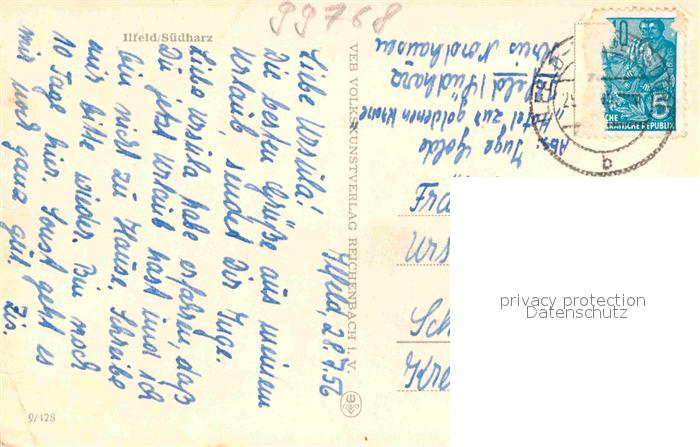 99768
Ilfeld/Südharz
Ilfeld, 28.7.56
Liebe Ursula!
Die besten Grüße aus meinem
Urlaub sendet Dir Inge.
Liebe Ursula habe erfahren, daß
Du jetzt Urlaub hast und ich
bin nicht zu Hause. Schreibe
mir bitte wieder. Bin noch
10 Tage hier. Sonst geht es
mir und ganz gut.
9/428
VEB VOLKSKUNSTVERLAG REICHENBACH i. V.
Abs. Inge
Hotel zur goldenen Krone
Ilfeld / Südharz
Kreis Nordhausen
Fra
Urs
Sch
Kre
5
b
privacy protection
Datenschutz